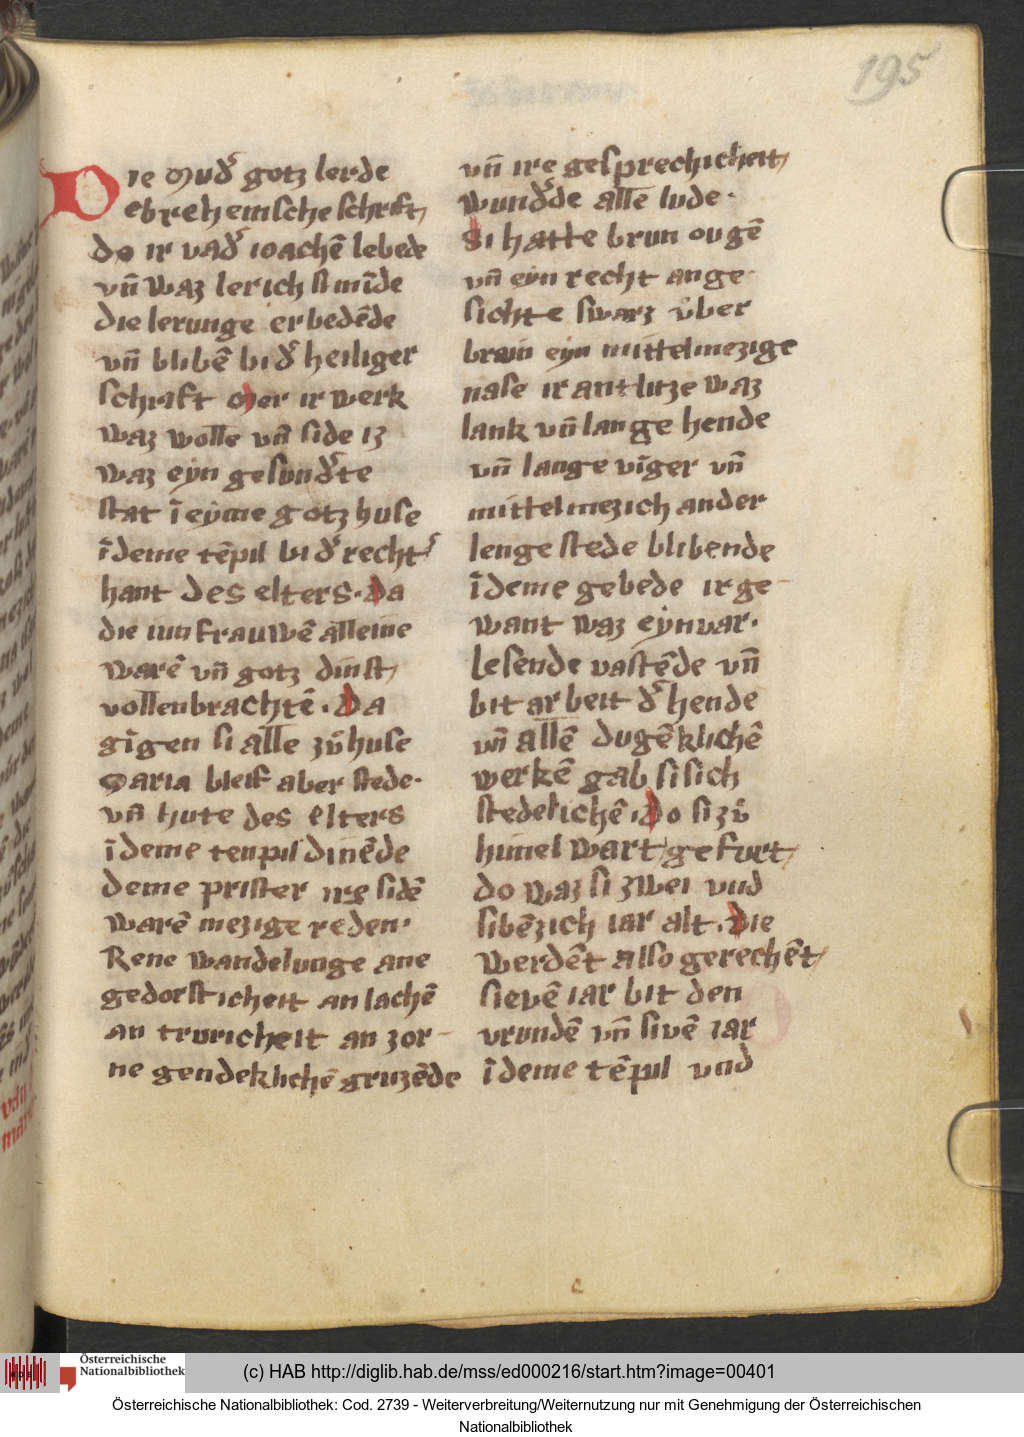 195
Die mud᷑ gotz lerde
ebreheinsche schrift
do ir vad᷑ ioachē lebede
vn̄ waz lerich st minīde
die lerunge er bedēde
vn̄ blibē bi d᷑ heiliger
schrift Mer ir werk
waz wolle vn̄ side iz
waz eyn gesund᷑te
stat ī eyme gotz huse
ī deme tēpil bi d᷑ recht᷑
hant des elters. Da
die iunfrauwē alleine
warē vn̄ gotz dinst
vollenbrachtē. Da
gīgen si alle zů huse
Maria bleif aber stede.
vn̄ hute des elters
ī deme tenpil dinēde
deme prister sidē
warē mezige reden.
Rene wandelunge ane
gedorsticheit an lachē
an trvricheit an zor
ne gendeklichē gruzēde
vn̄ ire gesprechicheit
wund᷑de alle lude.
Si hatte brun ougē
vn̄ eyn recht ange
sichte swarz v̊ber
brain eyn mittelmezige
nase ir antlitze waz
lank vn̄ lange hende
vn̄ lange vīger vn̄
mittelmezich an der
lenge stede blibende
ī deme gebede ir ge
want waz eynvar.
lesende vastēde vn̄
bit arbeit d᷑ hende
vn̄ allē dugēklichē
werkē gab si sich
stedelichē. Do si zů
himel wart gefurt
do waz si zwei vnd
sibēzich iar alt. Die
werdēt also gerechēt
sievē iar bit den
vrundē vn̄ sivē iar
ī deme tēpil vnd
Österreichische
Nationalbibliothek
(c) HAB http://diglib.hab.de/mss/ed000216/start.htm?image=00401
Österreichische Nationalbibliothek: Cod. 2739 - Weiterverbreitung/Weiternutzung nur mit Genehmigung der Österreichischen
Nationalbibliothek